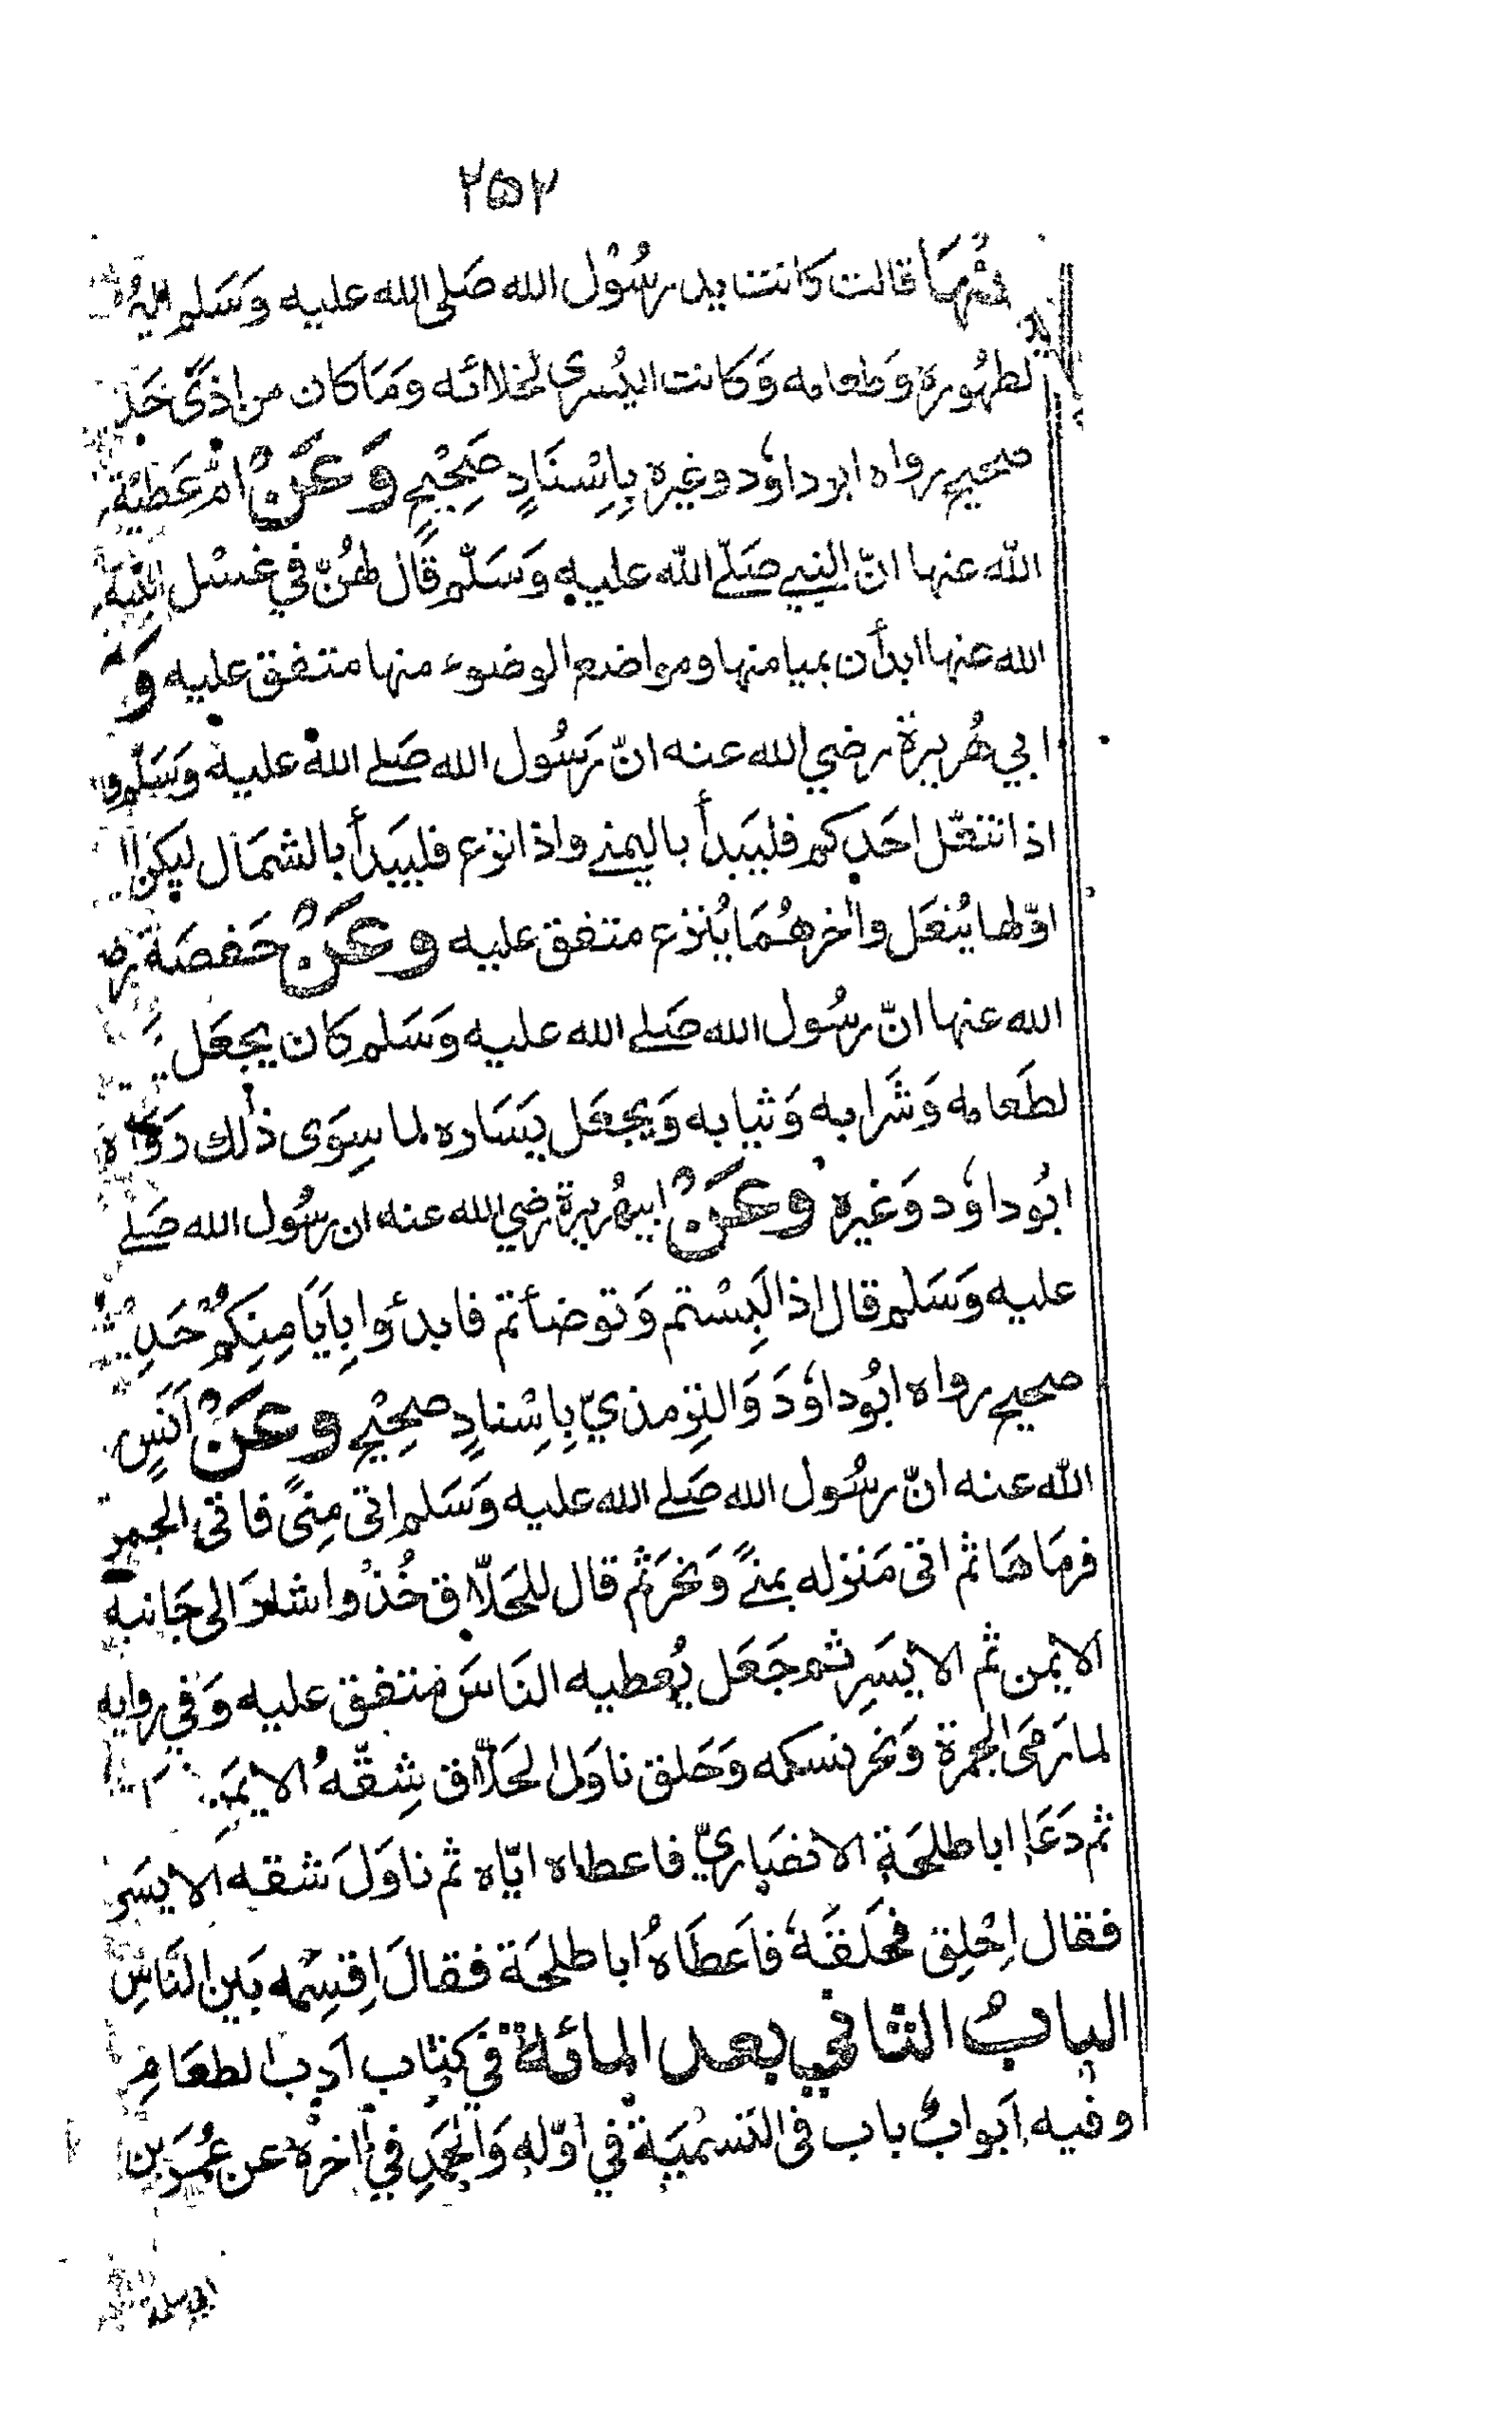 ٢٥٢
عنها قالت كانت يد رسُوْل الله صَلى الله عليه وَسَلم اليُم
لطهُوره وَطعامه وَكانت اليُسرى لخلائه وَمَا كان من اذًى حَد
صحيح رواه ابو داوٗد وغيره بِاِسْنَادٍ صَحِيْحٍ وَعَنْ امّ عَطيّة
الله عنها انّ النبي صَلّے الله عليه وَسَلّم قَال لهُنّ في غسْل ابنته
الله عنها ابدأن بميامنها ومواضع الوضوء منها متفق عليه وَ
ابي هُريرة رضي الله عنه انّ رَسُول الله صَلے الله عليه وَسَلّم
اذا انتعَل احَدكم فليَبدأ باليمنے واذا نزع فليبَدأ بالشمَال ليكن
اوّلهما يُنعَل واٰخرهُمَا يُنزع متفق عليه وعَنْ حَفصَة رض
الله عنها انّ رسُول الله صَلے الله عليه وَسَلم كَان يجعَل
لطَعامه وَشَرابه وَثيابه وَيجعَل يَسَاره لما سِوَى ذٰلك رَوَاه
ابُو داوٗد وَغيره وعَنْ ابيهُريرة رضي الله عنه ان رسُول الله صَلے
عليه وَسَلم قال اذا لَبِسْتم وَتوضأتم فابدئوا بِاَيَامِنِكمْ حَدِ
صحيح رواه ابُو داوٗدَ وَالترِمذيّ بِاِسْنادٍ صحِيْحٍ وعَنْ اَنَسٍ
الله عنه انّ رسُول الله صَلے الله عليه وَسَلم اتى مِنىً فاتى الجمر
فرمَاهَا ثم اتى مَنزله بمنےً وَنحَر ثم قال للحَلّاق خُذ واشارَ الى جَانبه
الايمن ثم الايسَرِ ثم جَعَل يُعطيه النَاسَ متفق عليه وَفي روايه
لما رَمَى الجمرة وَنحر نسكه وَحَلق ناوَل الحَلّاق شِقّهُ الايمَن
ثم دَعَا ابا طلحَة الانصَاريّ فاعطاه ايّاه ثم ناوَلَ شقه الايسَر
فقال اِحْلِق فحَلقَهٗ فاَعطَاهُ ابا طلحَة فقالَ اِقسِمْه بَين النَاسِ
البابُ الثاني بعد المائة في كتاب اَدب الطعَامِ
وفيه اَبوابٌ باب فى التسْميَة في اوّله وَالحَمدِ في اٰخره عن عُمَرَ بن
ابي سلمة